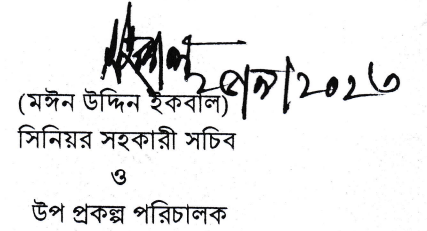 (মঈন উদ্দিন ইকবাল)
সিনিয়র সহকারী সচিব
ও
উপ প্রকল্প পরিচালক